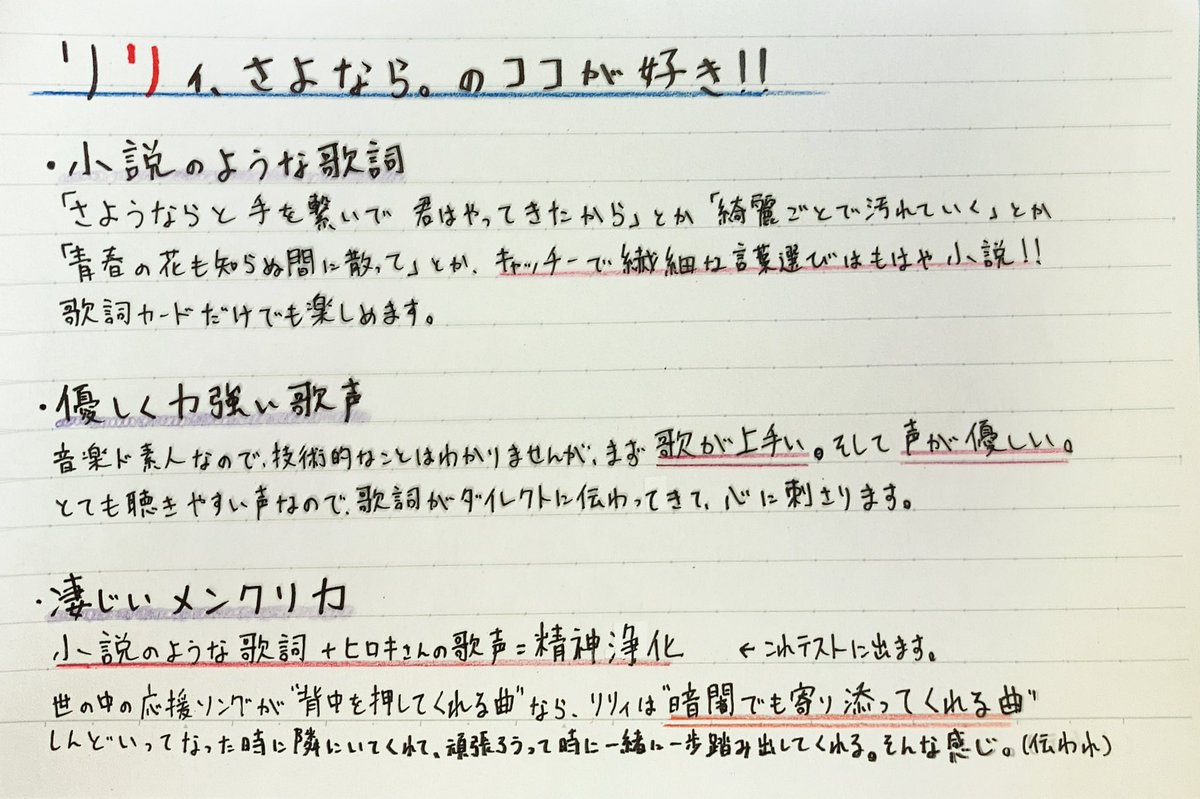 リリィ、さよなら。のココが好き!!
・小説のような歌詞
「さようならと手を繋いで 君はやってきたから」とか「綺麗ごとで汚れていく」とか
「青春の花も知らぬ間に散って」とか、キャッチーで繊細な言葉選びはもはや小説!!
歌詞カードだけでも楽しめます。
・優しく力強い歌声
音楽ド素人なので、技術的なことはわかりませんが、まず歌が上手い。そして声が優しい。
とても聴きやすい声なので、歌詞がダイレクトに伝わってきて、心に刺さります。
・凄じいメンクリ力
小説のような歌詞+ヒロキさんの歌声=精神浄化 ←これテストに出ます。
世の中の応援ソングが"背中を押してくれる曲"なら、リリィは"暗闇でも寄り添ってくれる曲"
しんどいってなった時に隣にいてくれて、頑張ろうって時に一緒に一歩踏み出してくれる。そんな感じ。(伝われ)